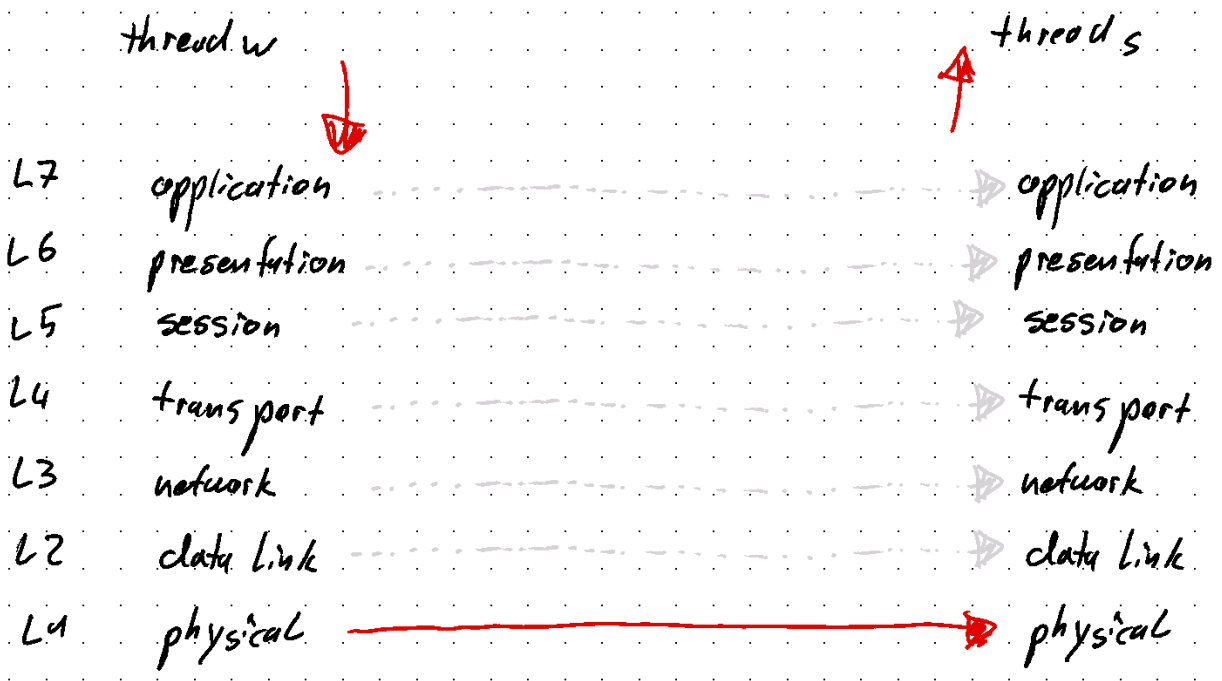 thread w thread s
L7 application application
L6 presentation presentation
L5 session session
L4 transport transport
L3 network network
L2 data link data link
L1 physical physical